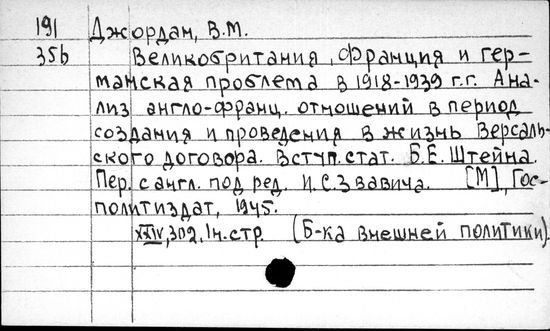 191 Джордан, В.М.
35б Великобритания, Франция и гер-
манская проблема в 1918-1939 г.г. Ана-
лиз англо-франц. отношений в период
создания и проведения в жизнь Версаль-
ского договора. Вступ. стат. Б.Е. Штейна.
Пер. с англ. под ред. И.С. Звавича. [М], Гос-
политиздат, 1945.
XXIV, 302, 1н. стр. (Б-ка внешней политики).